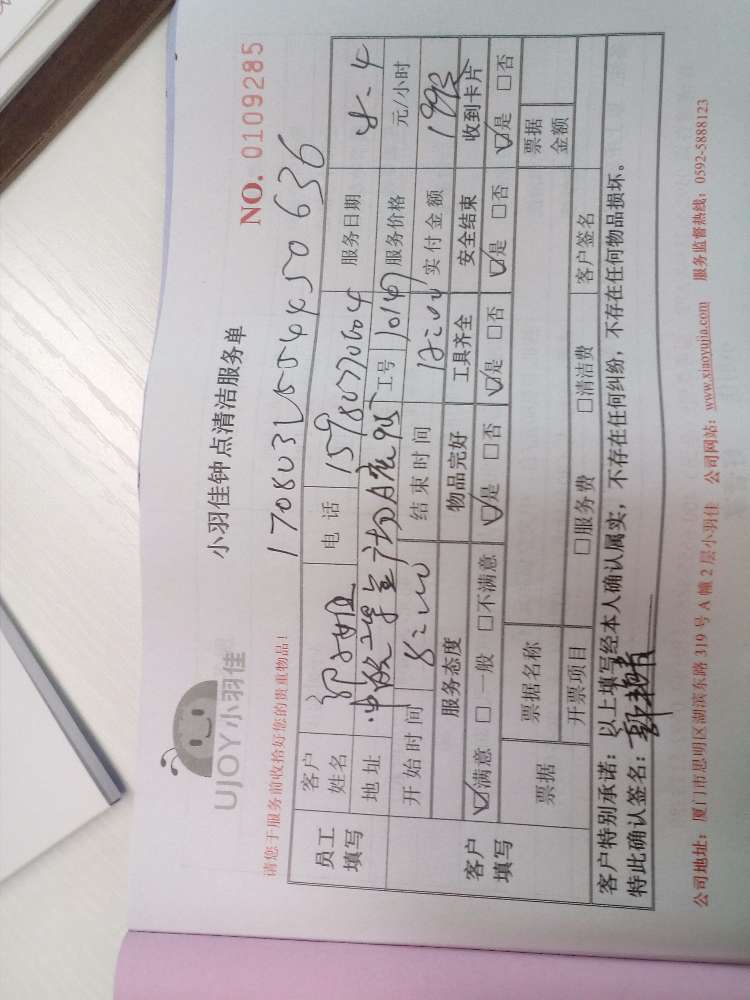 UJOY小羽佳
小羽佳钟点清洁服务单
NO. 0109285
请您于服务前收拾好您的贵重物品!
员工填写
客户姓名
电话
服务日期 8-4
地址
工号 10147
服务价格
元/小时
开始时间 8:00
结束时间 12:00
实付金额
客户填写
服务态度
物品完好
工具齐全
安全结束
收到卡片
☑满意 □一般 □不满意
☑是 □否
☑是 □否
☑是 □否
☑是 □否
票据
票据名称
票据金额
开票项目
□服务费
□清洁费
客户签名
客户特别承诺:以上填写经本人确认属实,不存在任何纠纷,不存在任何物品损坏。
特此确认签名:
公司地址:厦门市思明区湖滨东路 319 号 A 幢 2 层小羽佳 公司网站:www.xiaoyujia.com 服务监督热线:0592-5888123